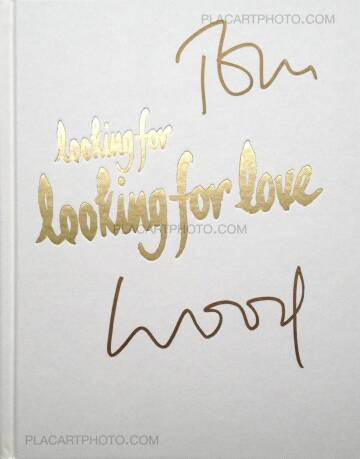 PLACARTPHOTO.COM
Tom
looking for
looking for love
PLACARTPHOTO.COM
Wood
PLACARTPHOTO.COM